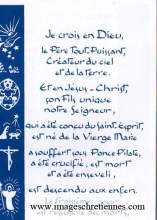 Je crois en Dieu,
le Père Tout-Puissant,
Créateur du ciel
et de la Terre.
Et en Jésus-Christ,
son Fils unique
notre Seigneur,
qui a été conçu du Saint Esprit,
est né de la Vierge Marie
a souffert sous Ponce Pilate,
a été crucifié, est mort
et a été enseveli,
est descendu aux enfers.
Le troisième jour
est ressuscité des morts,
www.imageschretiennes.com